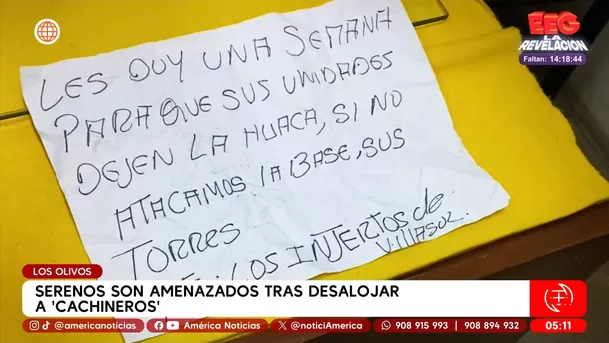 EEG
LA
REVELACIÓN
Faltan: 14:18:44
LES DOY UNA SEMANA
PARA QUE SUS UNIDADES
DEJEN LA HUACA, SI NO
ATACAMOS LA BASE, SUS
TORRES
LOS INJERTOS de
VILLASOL.
LOS OLIVOS
SERENOS SON AMENAZADOS TRAS DESALOJAR
A 'CACHINEROS'
@americanoticias América Noticias @noticiAmerica 908 915 993 | 908 894 932 05:11